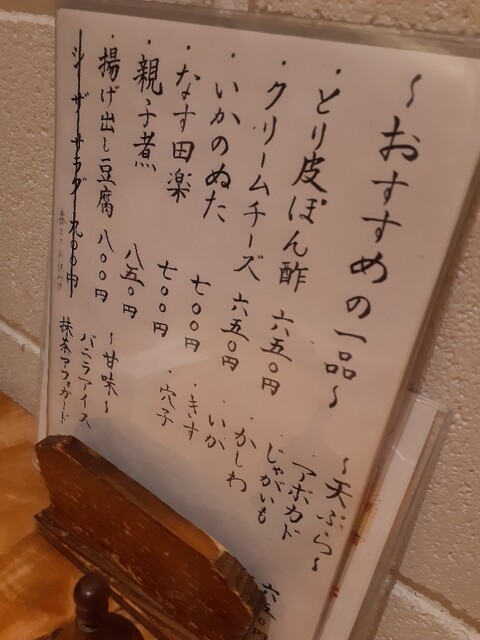 〜おすすめの一品〜
・とり皮ぽん酢 六五〇円
・クリームチーズ 六五〇円
・いかのぬた 七〇〇円
・なす田楽 七〇〇円
・親子煮 八五〇円
・揚げ出し豆腐 八〇〇円
シーザーサラダ 九〇〇円
〜天ぷら〜
アボカド
・じゃがいも 六五〇円
・かしわ
・いか
・きす
・穴子
〜甘味〜
バニラアイス
抹茶アフォガード